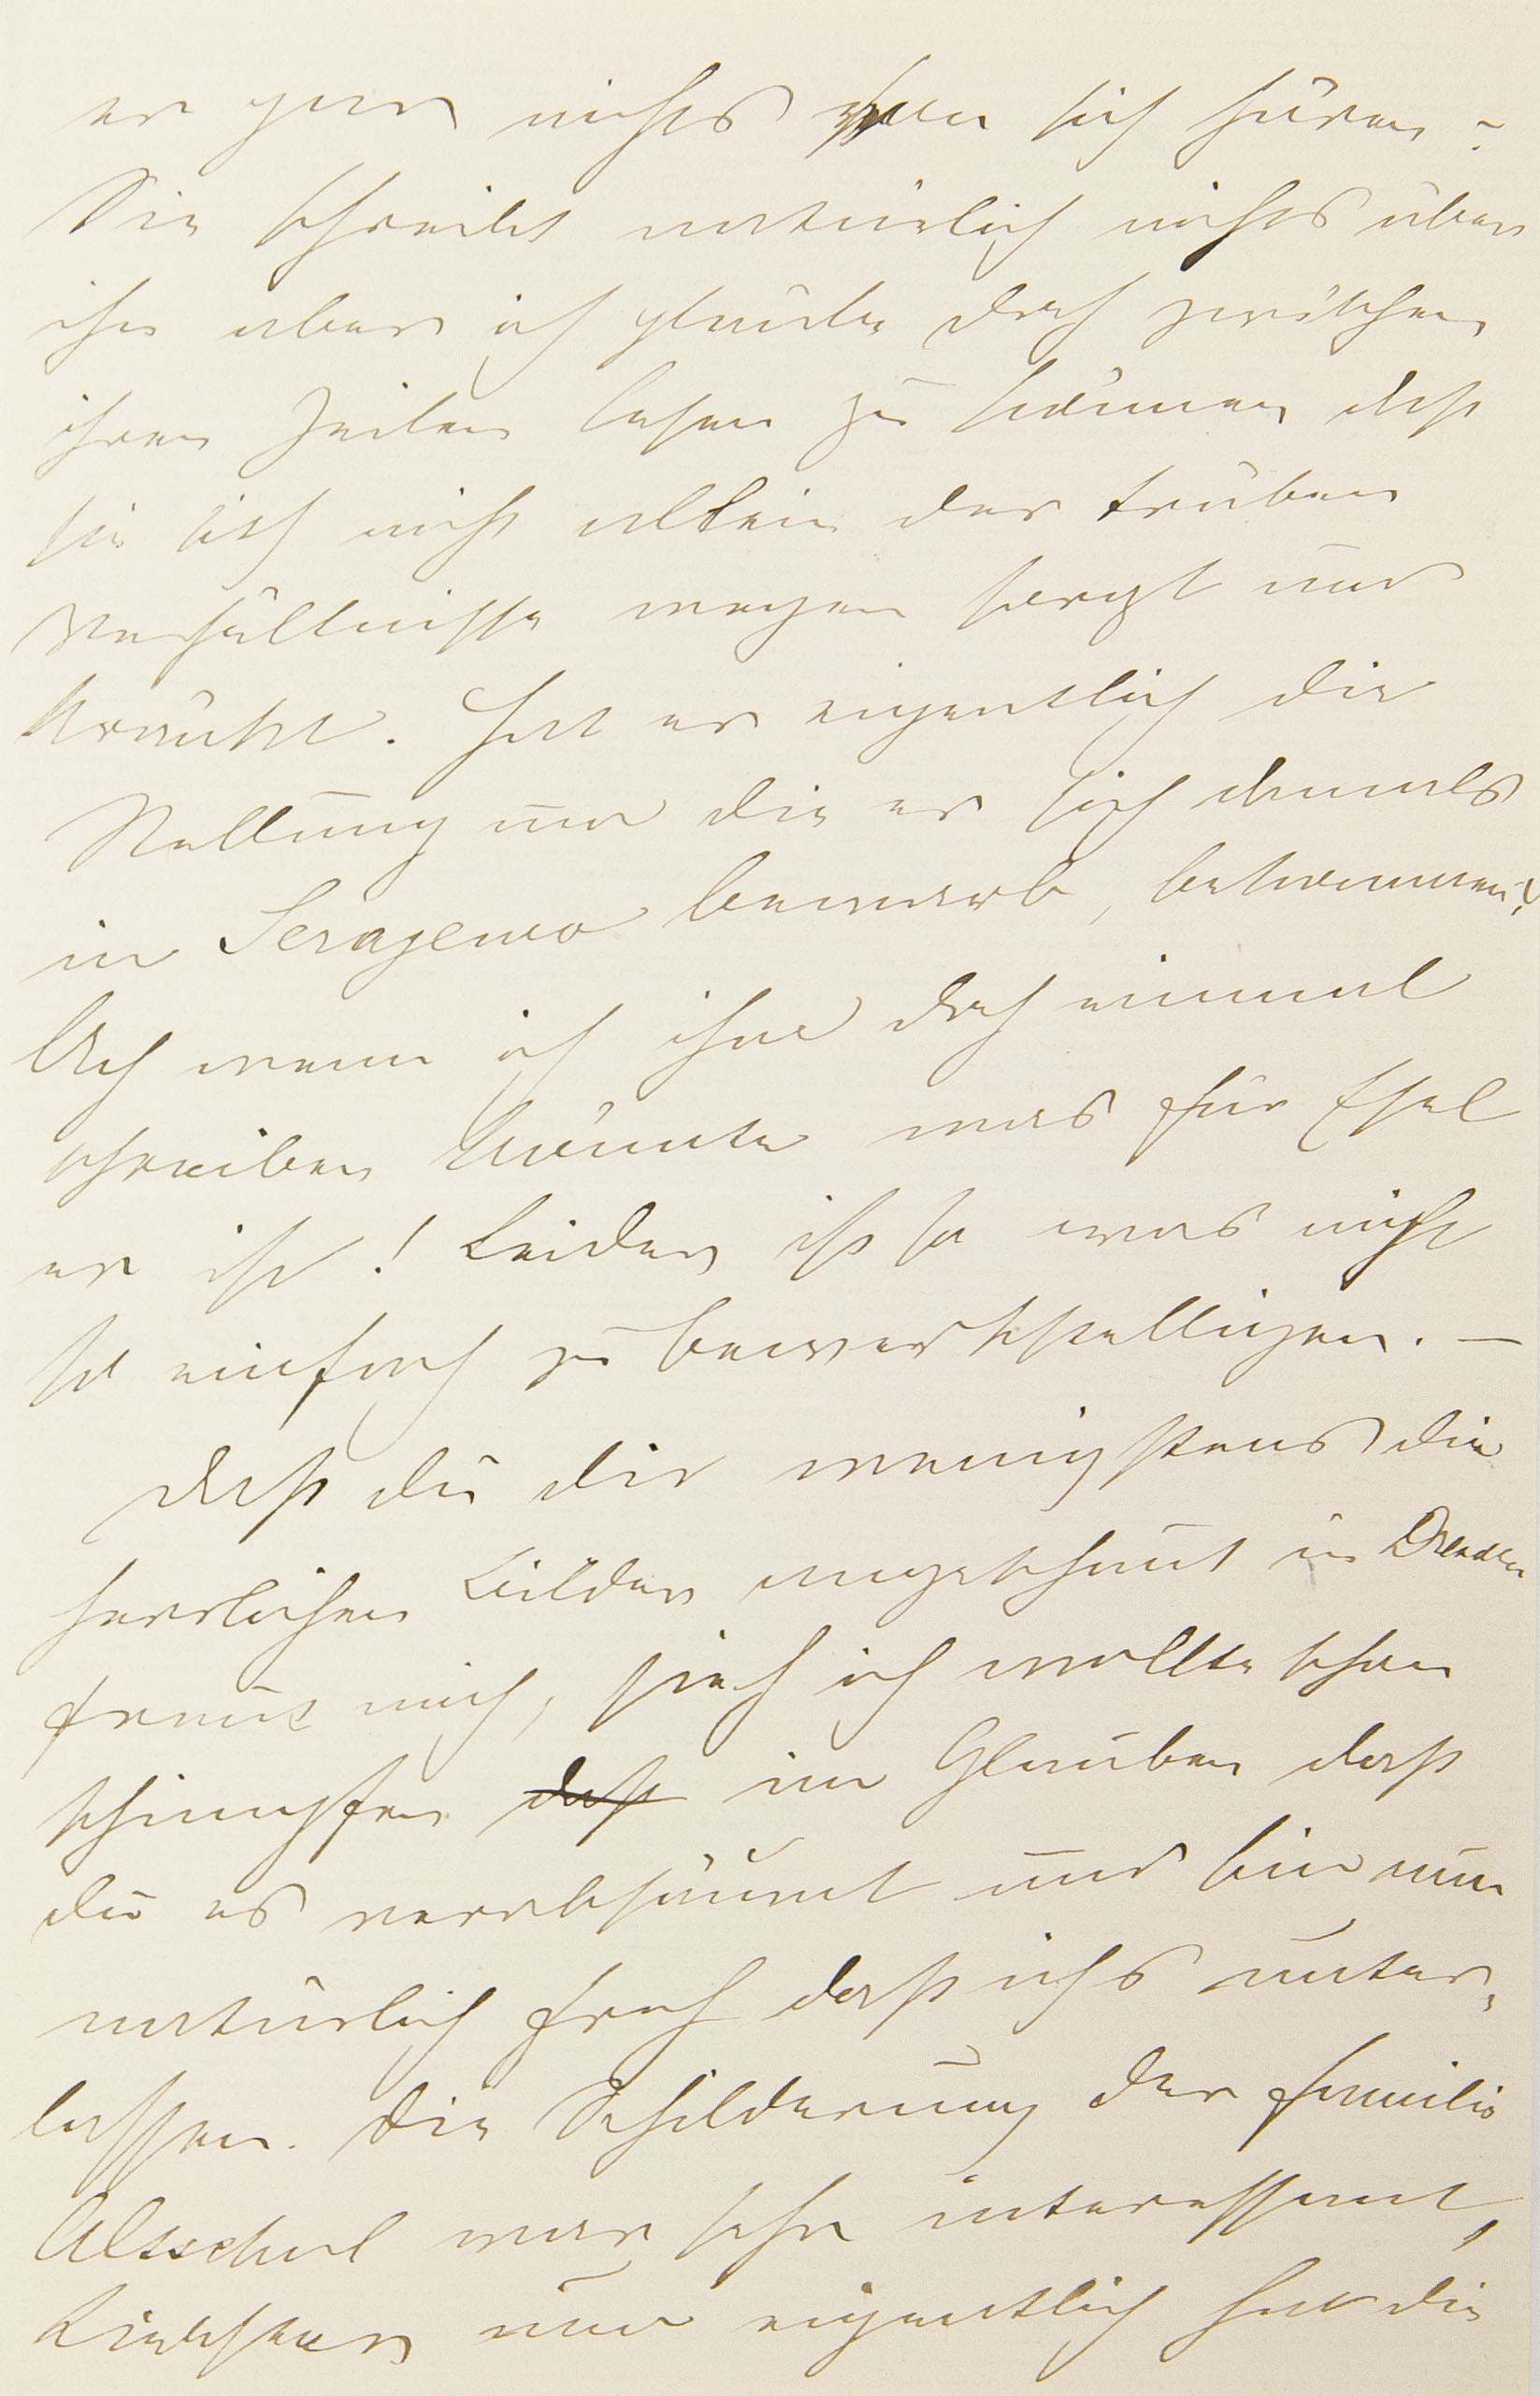 er gar nichts von sich hören?
Sie schreibt natürlich nichts über
ihn aber ich glaube doch zwischen
ihren Zeilen lesen zu können daß
sie sich nicht allein der trüben
Verhältnisse wegen sorgt und
kränkt. Hat er eigentlich die
Stellung um die er sich damals
in Serajewo bewarb, bekommen?
Ach wenn ich ihm doch einmal
schreiben könnte was für Esel
er ist! Leider ist so was nicht
so einfach zu bewerkstelligen. —
Daß du dir wenigstens die
herrlichen Bilder angeschaut in Dresden
freut mich, sieh ich wollte schon
schimpfen daß im Glauben daß
du es verabsäumt und bin nun
natürlich froh daß ichs unter-
lassen. Die Schilderung der Familie
Altschul war sehr interessant,
Liebster, nun eigentlich hat die